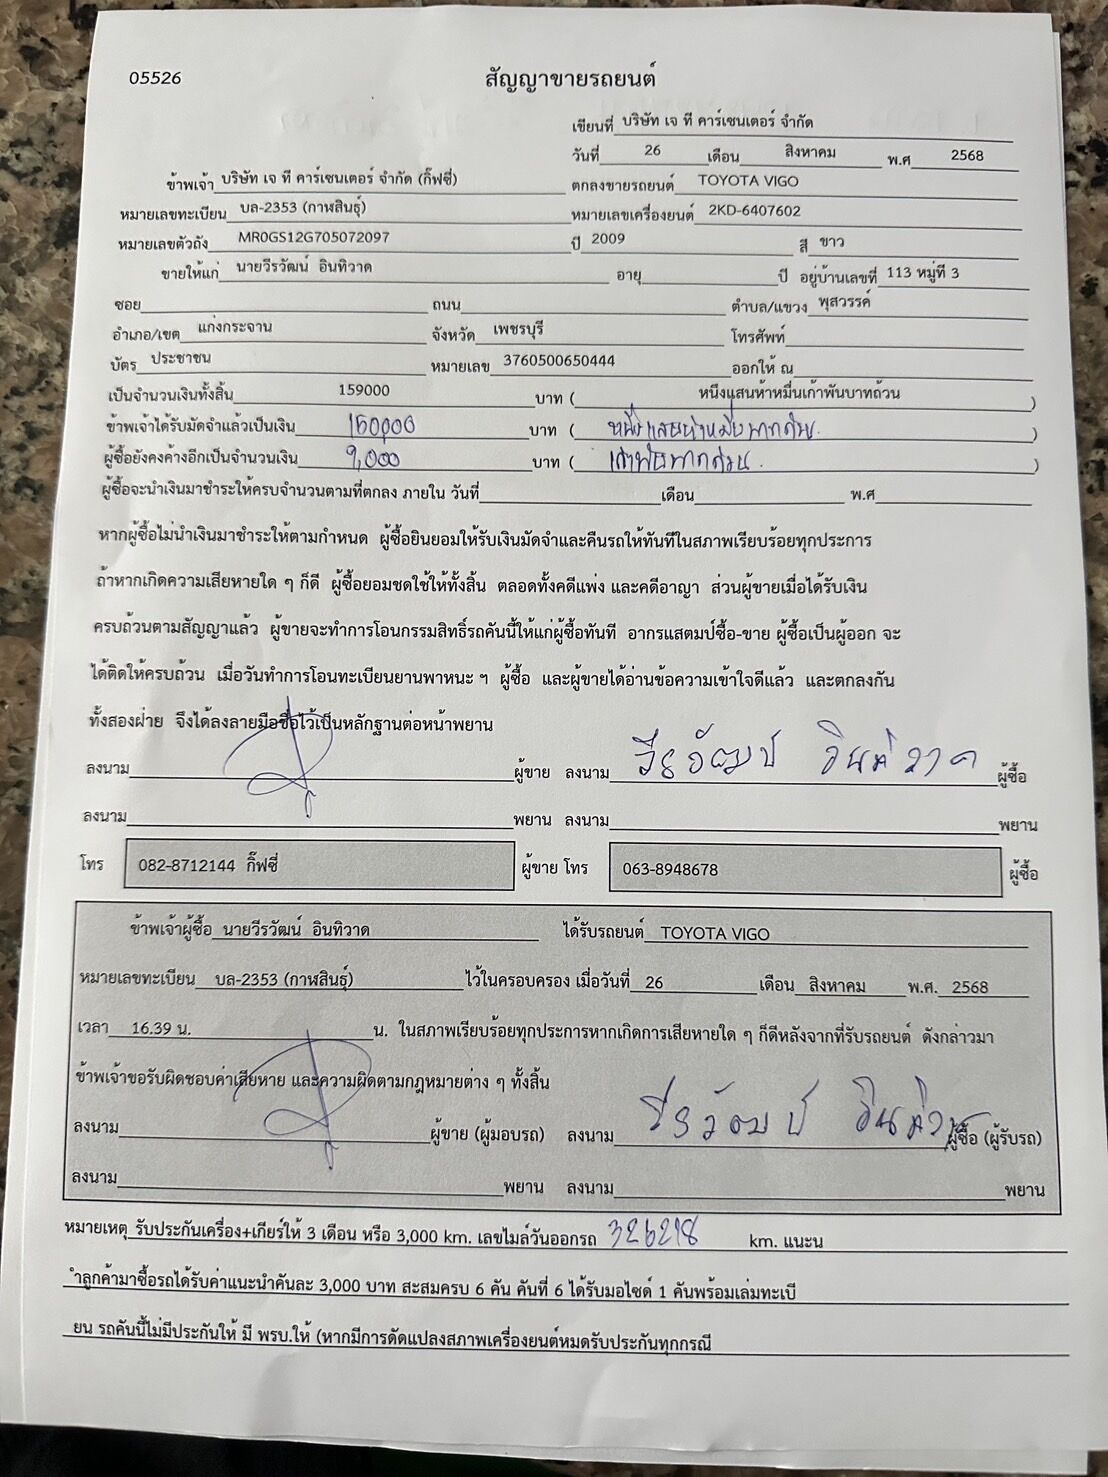 05526
สัญญาขายรถยนต์
เขียนที่ บริษัท เจ ที คาร์เซนเตอร์ จำกัด
วันที่ 26 เดือน สิงหาคม พ.ศ 2568
ข้าพเจ้า บริษัท เจ ที คาร์เซนเตอร์ จำกัด (กิ๊ฟซี่) ตกลงขายรถยนต์ TOYOTA VIGO
หมายเลขทะเบียน บล-2353 (กาฬสินธุ์) หมายเลขเครื่องยนต์ 2KD-6407602
หมายเลขตัวถัง MR0GS12G705072097 ปี 2009 สี ขาว
ขายให้แก่ นายวีรวัฒน์ อินทิวาด อายุ ปี อยู่บ้านเลขที่ 113 หมู่ที่ 3
ซอย ถนน ตำบล/แขวง พุสวรรค์
อำเภอ/เขต แก่งกระจาน จังหวัด เพชรบุรี โทรศัพท์
บัตร ประชาชน หมายเลข 3760500650444 ออกให้ ณ
เป็นจำนวนเงินทั้งสิ้น 159000 บาท ( หนึ่งแสนห้าหมื่นเก้าพันบาทถ้วน )
ข้าพเจ้าได้รับมัดจำแล้วเป็นเงิน 150000 บาท ( หนึ่งแสนห้าหมื่นบาทถ้วน. )
ผู้ซื้อยังคงค้างอีกเป็นจำนวนเงิน 9,000 บาท ( เก้าพันบาทถ้วน. )
ผู้ซื้อจะนำเงินมาชำระให้ครบจำนวนตามที่ตกลง ภายใน วันที่ เดือน พ.ศ
หากผู้ซื้อไม่นำเงินมาชำระให้ตามกำหนด ผู้ซื้อยินยอมให้รับเงินมัดจำและคืนรถให้ทันทีในสภาพเรียบร้อยทุกประการ
ถ้าหากเกิดความเสียหายใด ๆ ก็ดี ผู้ซื้อยอมชดใช้ให้ทั้งสิ้น ตลอดทั้งคดีแพ่ง และคดีอาญา ส่วนผู้ขายเมื่อได้รับเงิน
ครบถ้วนตามสัญญาแล้ว ผู้ขายจะทำการโอนกรรมสิทธิ์รถคันนี้ให้แก่ผู้ซื้อทันที อากรแสตมป์ซื้อ-ขาย ผู้ซื้อเป็นผู้ออก จะ
ได้ติดให้ครบถ้วน เมื่อวันทำการโอนทะเบียนยานพาหนะ ฯ ผู้ซื้อ และผู้ขายได้อ่านข้อความเข้าใจดีแล้ว และตกลงกัน
ทั้งสองฝ่าย จึงได้ลงลายมือชื่อไว้เป็นหลักฐานต่อหน้าพยาน
ลงนาม ผู้ขาย ลงนาม วีรวัฒน์ อินทิวาด ผู้ซื้อ
ลงนาม พยาน ลงนาม พยาน
โทร 082-8712144 กิ๊ฟซี่ ผู้ขาย โทร 063-8948678 ผู้ซื้อ
ข้าพเจ้าผู้ซื้อ นายวีรวัฒน์ อินทิวาด ได้รับรถยนต์ TOYOTA VIGO
หมายเลขทะเบียน บล-2353 (กาฬสินธุ์) ไว้ในครอบครอง เมื่อวันที่ 26 เดือน สิงหาคม พ.ศ. 2568
เวลา 16.39 น. น. ในสภาพเรียบร้อยทุกประการหากเกิดการเสียหายใด ๆ ก็ดีหลังจากที่รับรถยนต์ ดังกล่าวมา
ข้าพเจ้าขอรับผิดชอบค่าเสียหาย และความผิดตามกฎหมายต่าง ๆ ทั้งสิ้น
ลงนาม ผู้ขาย (ผู้มอบรถ) ลงนาม วีรวัฒน์ อินทิวาด ผู้ซื้อ (ผู้รับรถ)
ลงนาม พยาน ลงนาม พยาน
หมายเหตุ รับประกันเครื่อง+เกียร์ให้ 3 เดือน หรือ 3,000 km. เลขไมล์วันออกรถ 326218 km. แนะน
ำลูกค้ามาซื้อรถได้รับค่าแนะนำคันละ 3,000 บาท สะสมครบ 6 คัน คันที่ 6 ได้รับมอไซด์ 1 คันพร้อมเล่มทะเบี
ยน รถคันนี้ไม่มีประกันให้ มี พรบ.ให้ (หากมีการดัดแปลงสภาพเครื่องยนต์หมดรับประกันทุกกรณี